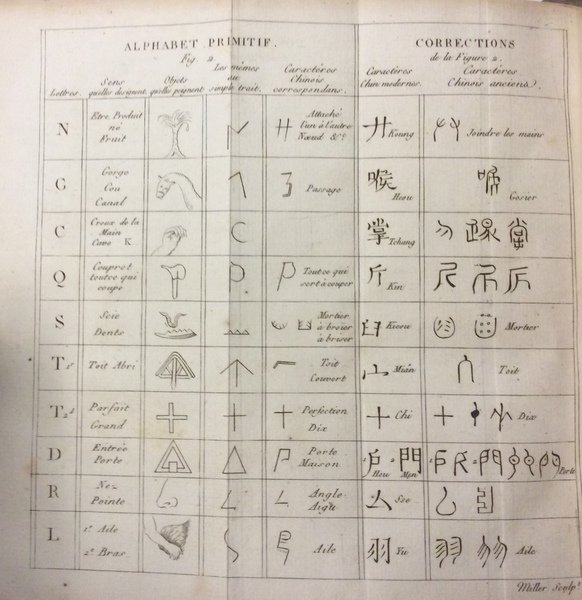 ALPHABET PRIMITIF.
Fig. 2
CORRECTIONS
de la Figure 2.
Lettres.
Sens
qu'elles désignent.
Objets
qu'elles peignent
Les mêmes
au
simple trait.
Caractères
Chinois
correspondans.
Caractères
Chin. modernes.
Caractères
Chinois anciens.
N
Etre Produit
né
Fruit
Attaché
l'un à l'autre
Nœud &c.
廾 Koung
Joindre les mains
G
Gorge
Cou
Canal
Passage
喉 Heou
Gosier
C
Creux de la
Main
Cave K
掌 Tchang
Q
Couper et
tout ce qui
coupe
Tout ce qui
sert à couper
斤 Kin
S
Scie
Dents
Mortier
à broier
à briser
臼 Kieou
Mortier
T 1er
Toit Abri
Toit
Couvert
宀 Mián
Toit
T 2d
Parfait
Grand
Perfection
Dix
十 Chi
Dix
D
Entrée
Porte
Porte
Maison
戶 Hou 門 Men
Porte
R
Nez
Pointe
Angle
Aigu
Sse
L
1º Aile
2º Bras
Aile
羽 Yu
Aile
Miller Sculpt.